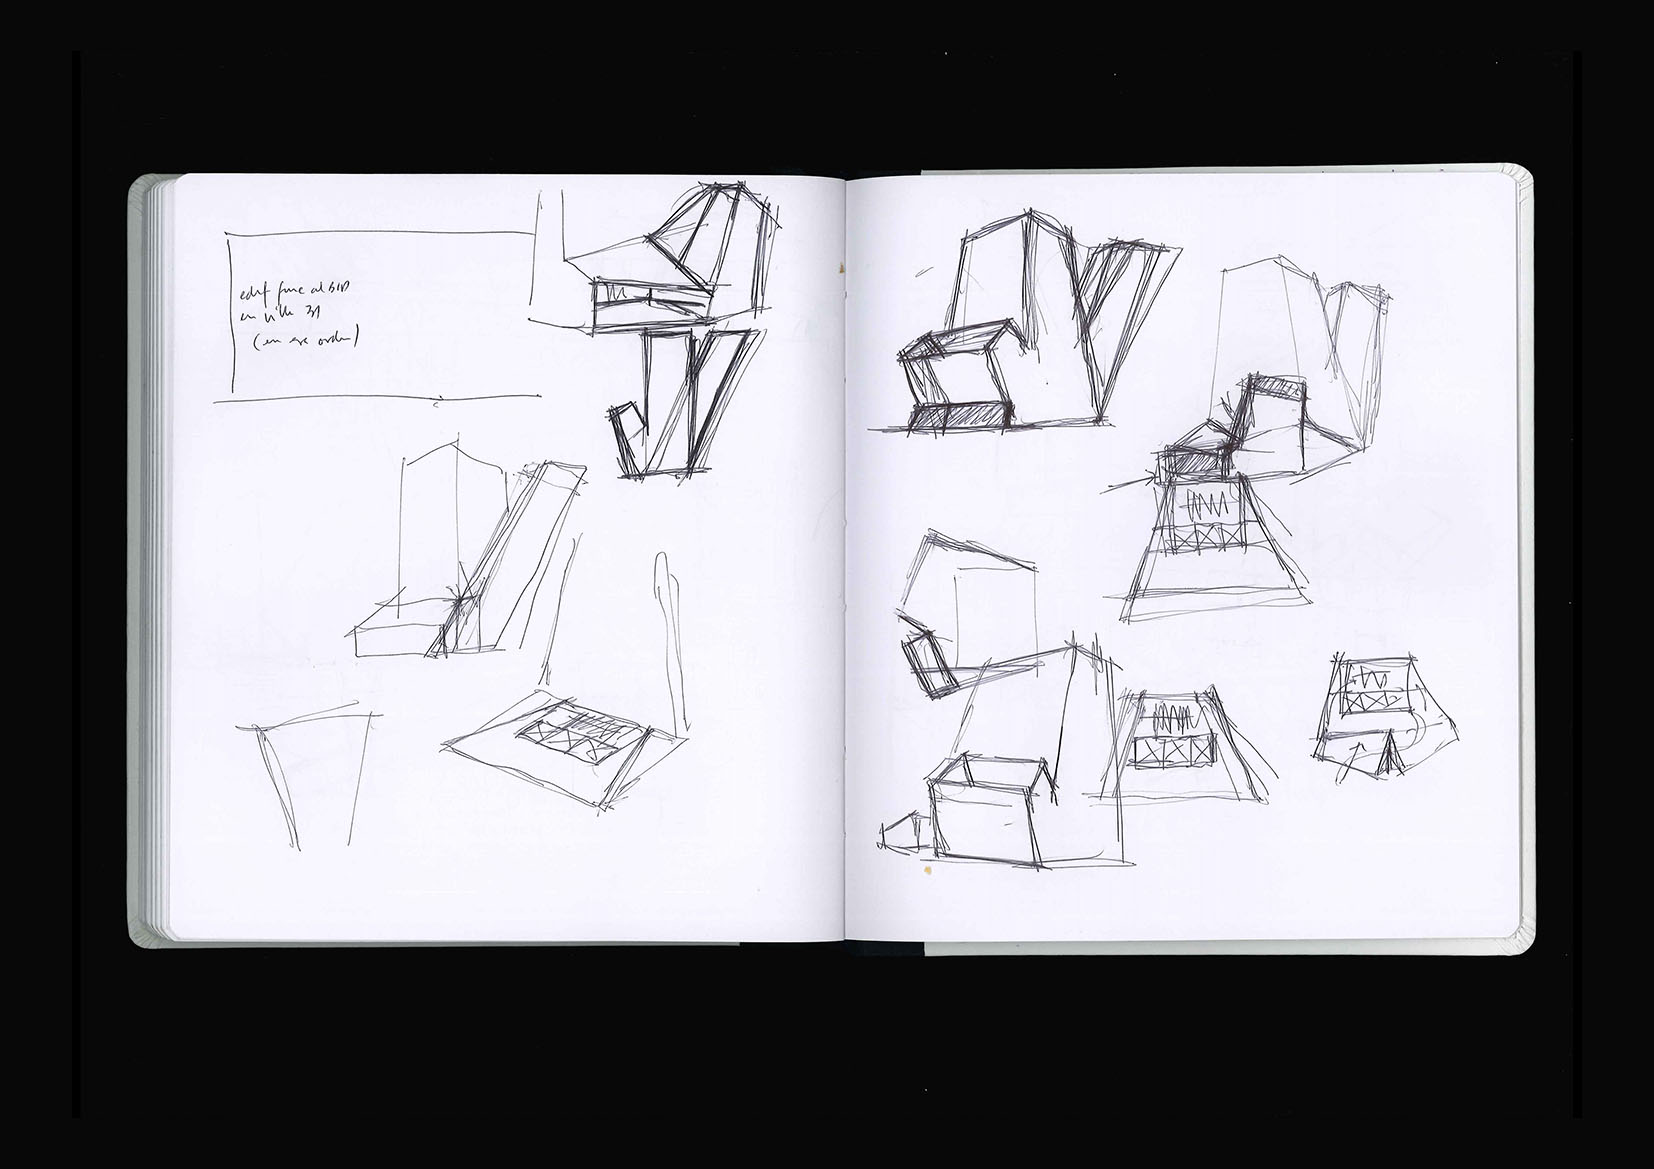 edif func al BID
en villa 31
(en ese orden)